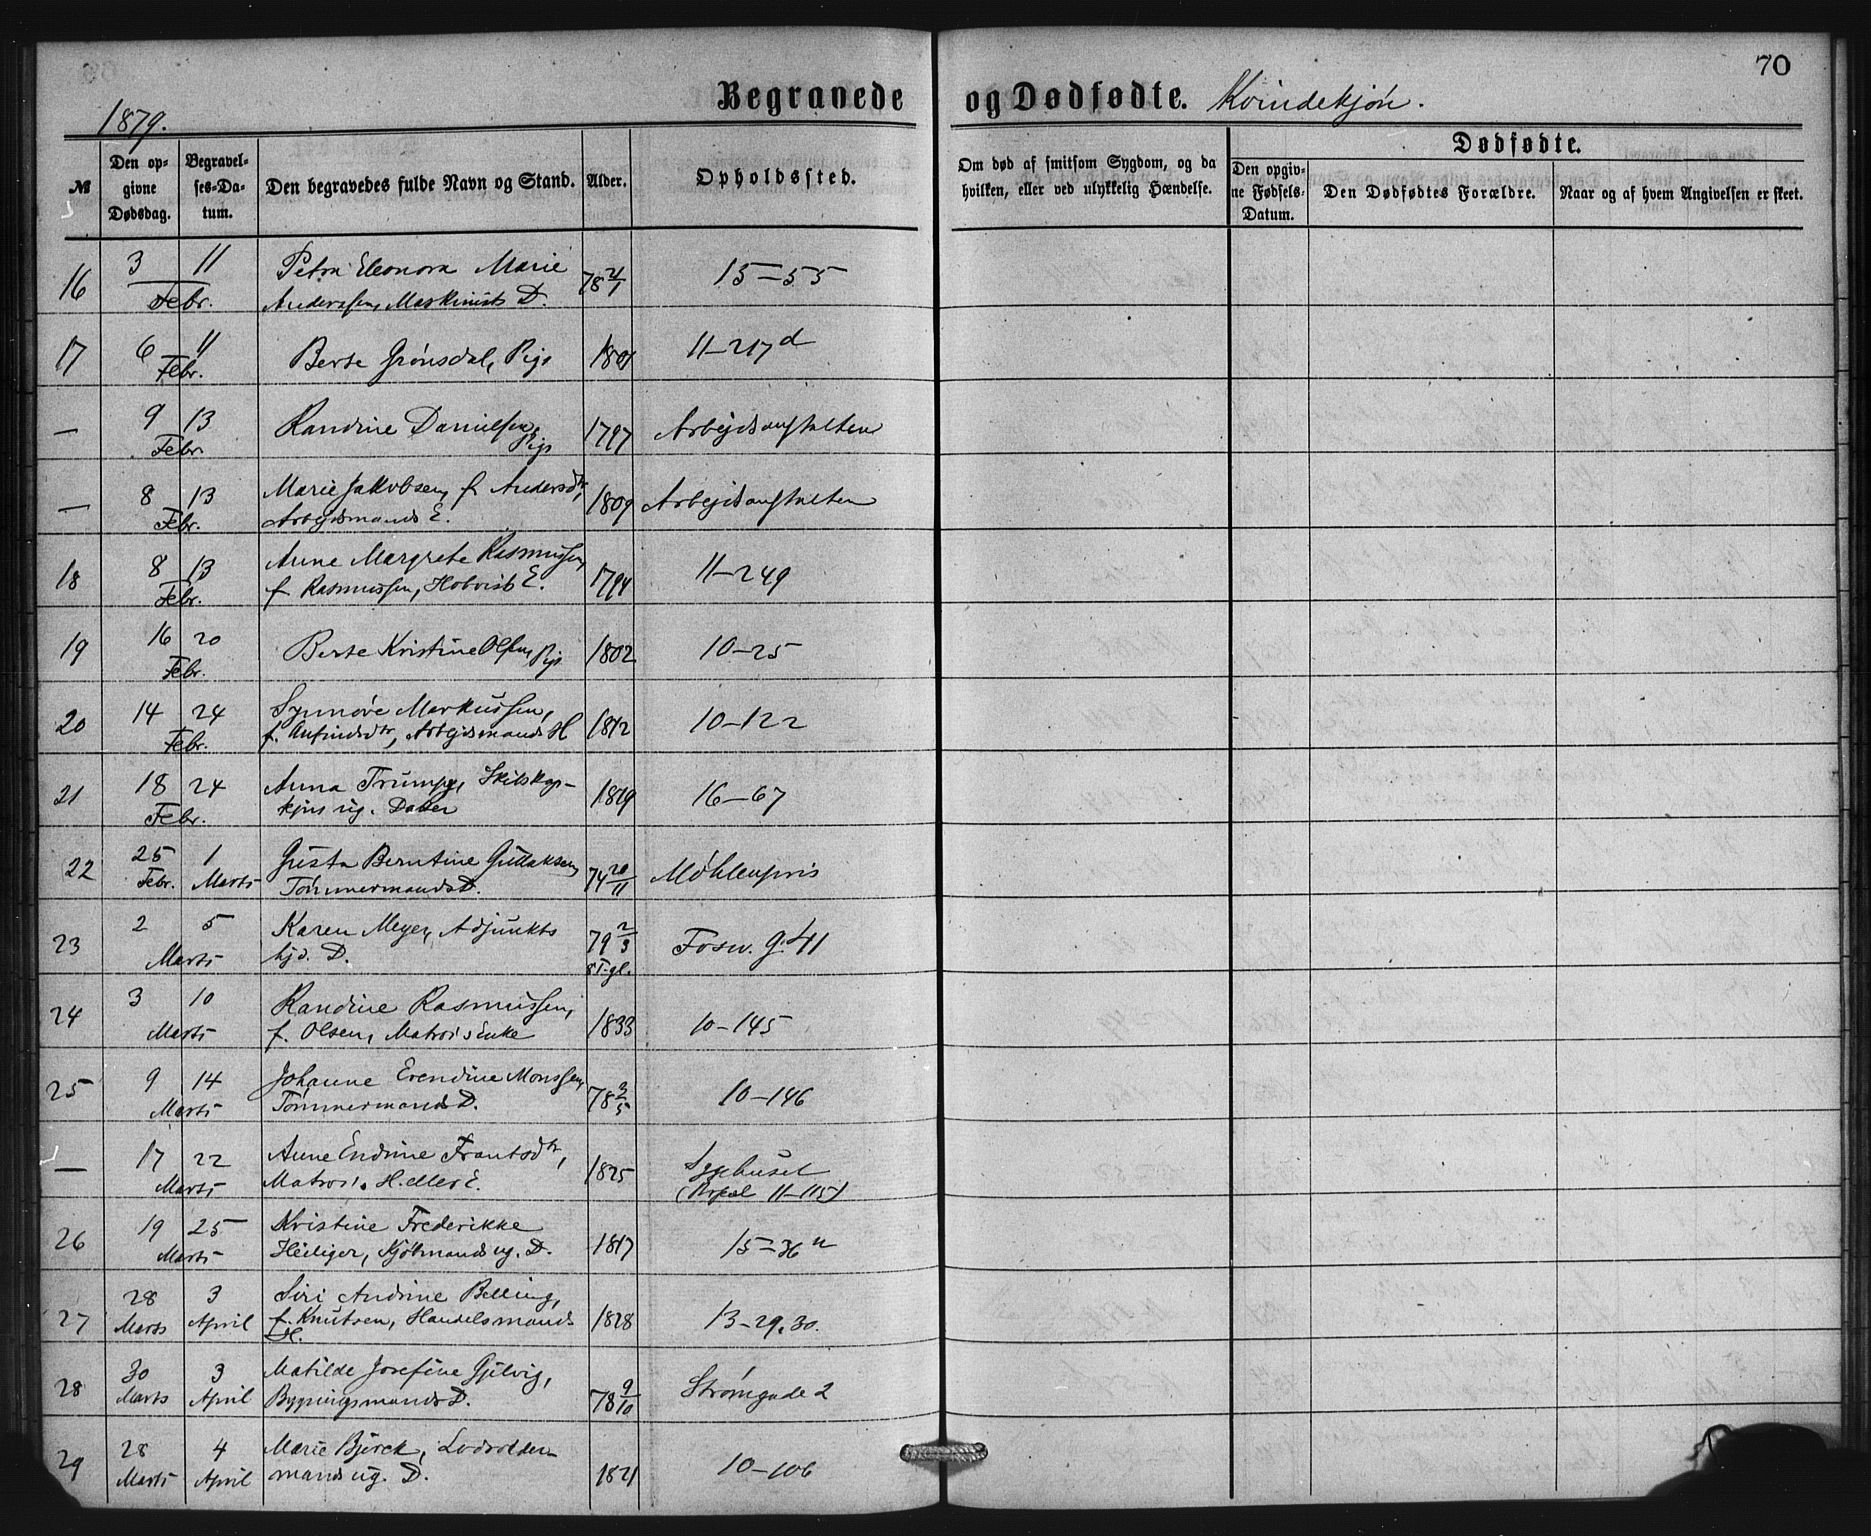 70
Begravede og Dødfødte. Kvindekjøn.
1879.
№ Den opgivne Dødsdag. Begravelses-Datum. Den begravedes fulde Navn og Stand. Alder. Opholdssted. Om død af smitsom Sygdom, og da hvilken, eller ved ulykkelig Hændelse. Dødfødte. Den opgivne Fødsels-Datum. Den Dødfødtes Forældre. Naar og af hvem Angivelsen er skeet.
16 3 11 Febr. Petra Eleonora Marie 78 21/1 15–55
Andersen, Maskinists D.
17 6 11 Febr. Berte Grønsdal, Pige 1801 11–217 d
— 9 13 Febr. Randine Danielsen, Pige 1797 Arbejdsanstalten
— 8 13 Febr. Marie Jakobsen, f. Andersdtr, 1809 Arbejdsanstalten
Arbejdsmands E.
18 8 13 Febr. Anne Margrete Rasmussen, 1794 11–249
f. Rasmussen, E.
19 16 20 Febr. Berte Kristine Olsen, Pige 1802 10–25
20 14 24 Febr. Synnøve Markussen, 1812 10–122
f. Anfindsdtr, Arbejdsmands H
21 18 24 Febr. Anna Trumpy, 1819 16–67
ug. Datter
22 25 Febr. 1 Marts Gusta Berntine Gullaksen, 74 20/11 Møhlenpris
Tømmermands D.
23 2 5 Marts Karen Meyer, Adjunkts 79 2/3 g. 41
hjd. D. 8 T. gl.
24 3 10 Marts Randine Rasmussen, 1833 10–145
f. Olsen, Matros's Enke
25 9 14 Marts Johanne Erendine Monssen, 78 3/5 10–146
Tømmermands D.
— 17 22 Marts Anne Endine Frantsdtr, 1825 Sygehuset
Matros's H. eller E. (11–115)
26 19 25 Marts Kristine Frederikke 1817 15–36
Heiliger, Kjøbmands ug. D.
27 28 Marts 3 April Siri Andrine Belling, 1828 13–29, 30.
f. Knutsen, Handelsmands
H.
28 30 Marts 3 April Matilde Josefine Gjelvig, 78 9/10 Strømgade 2
Bygningsmands D.
29 28 Marts 4 April Marie Bjerck, Lodsolder- 1821 10–106
mands ug. D.